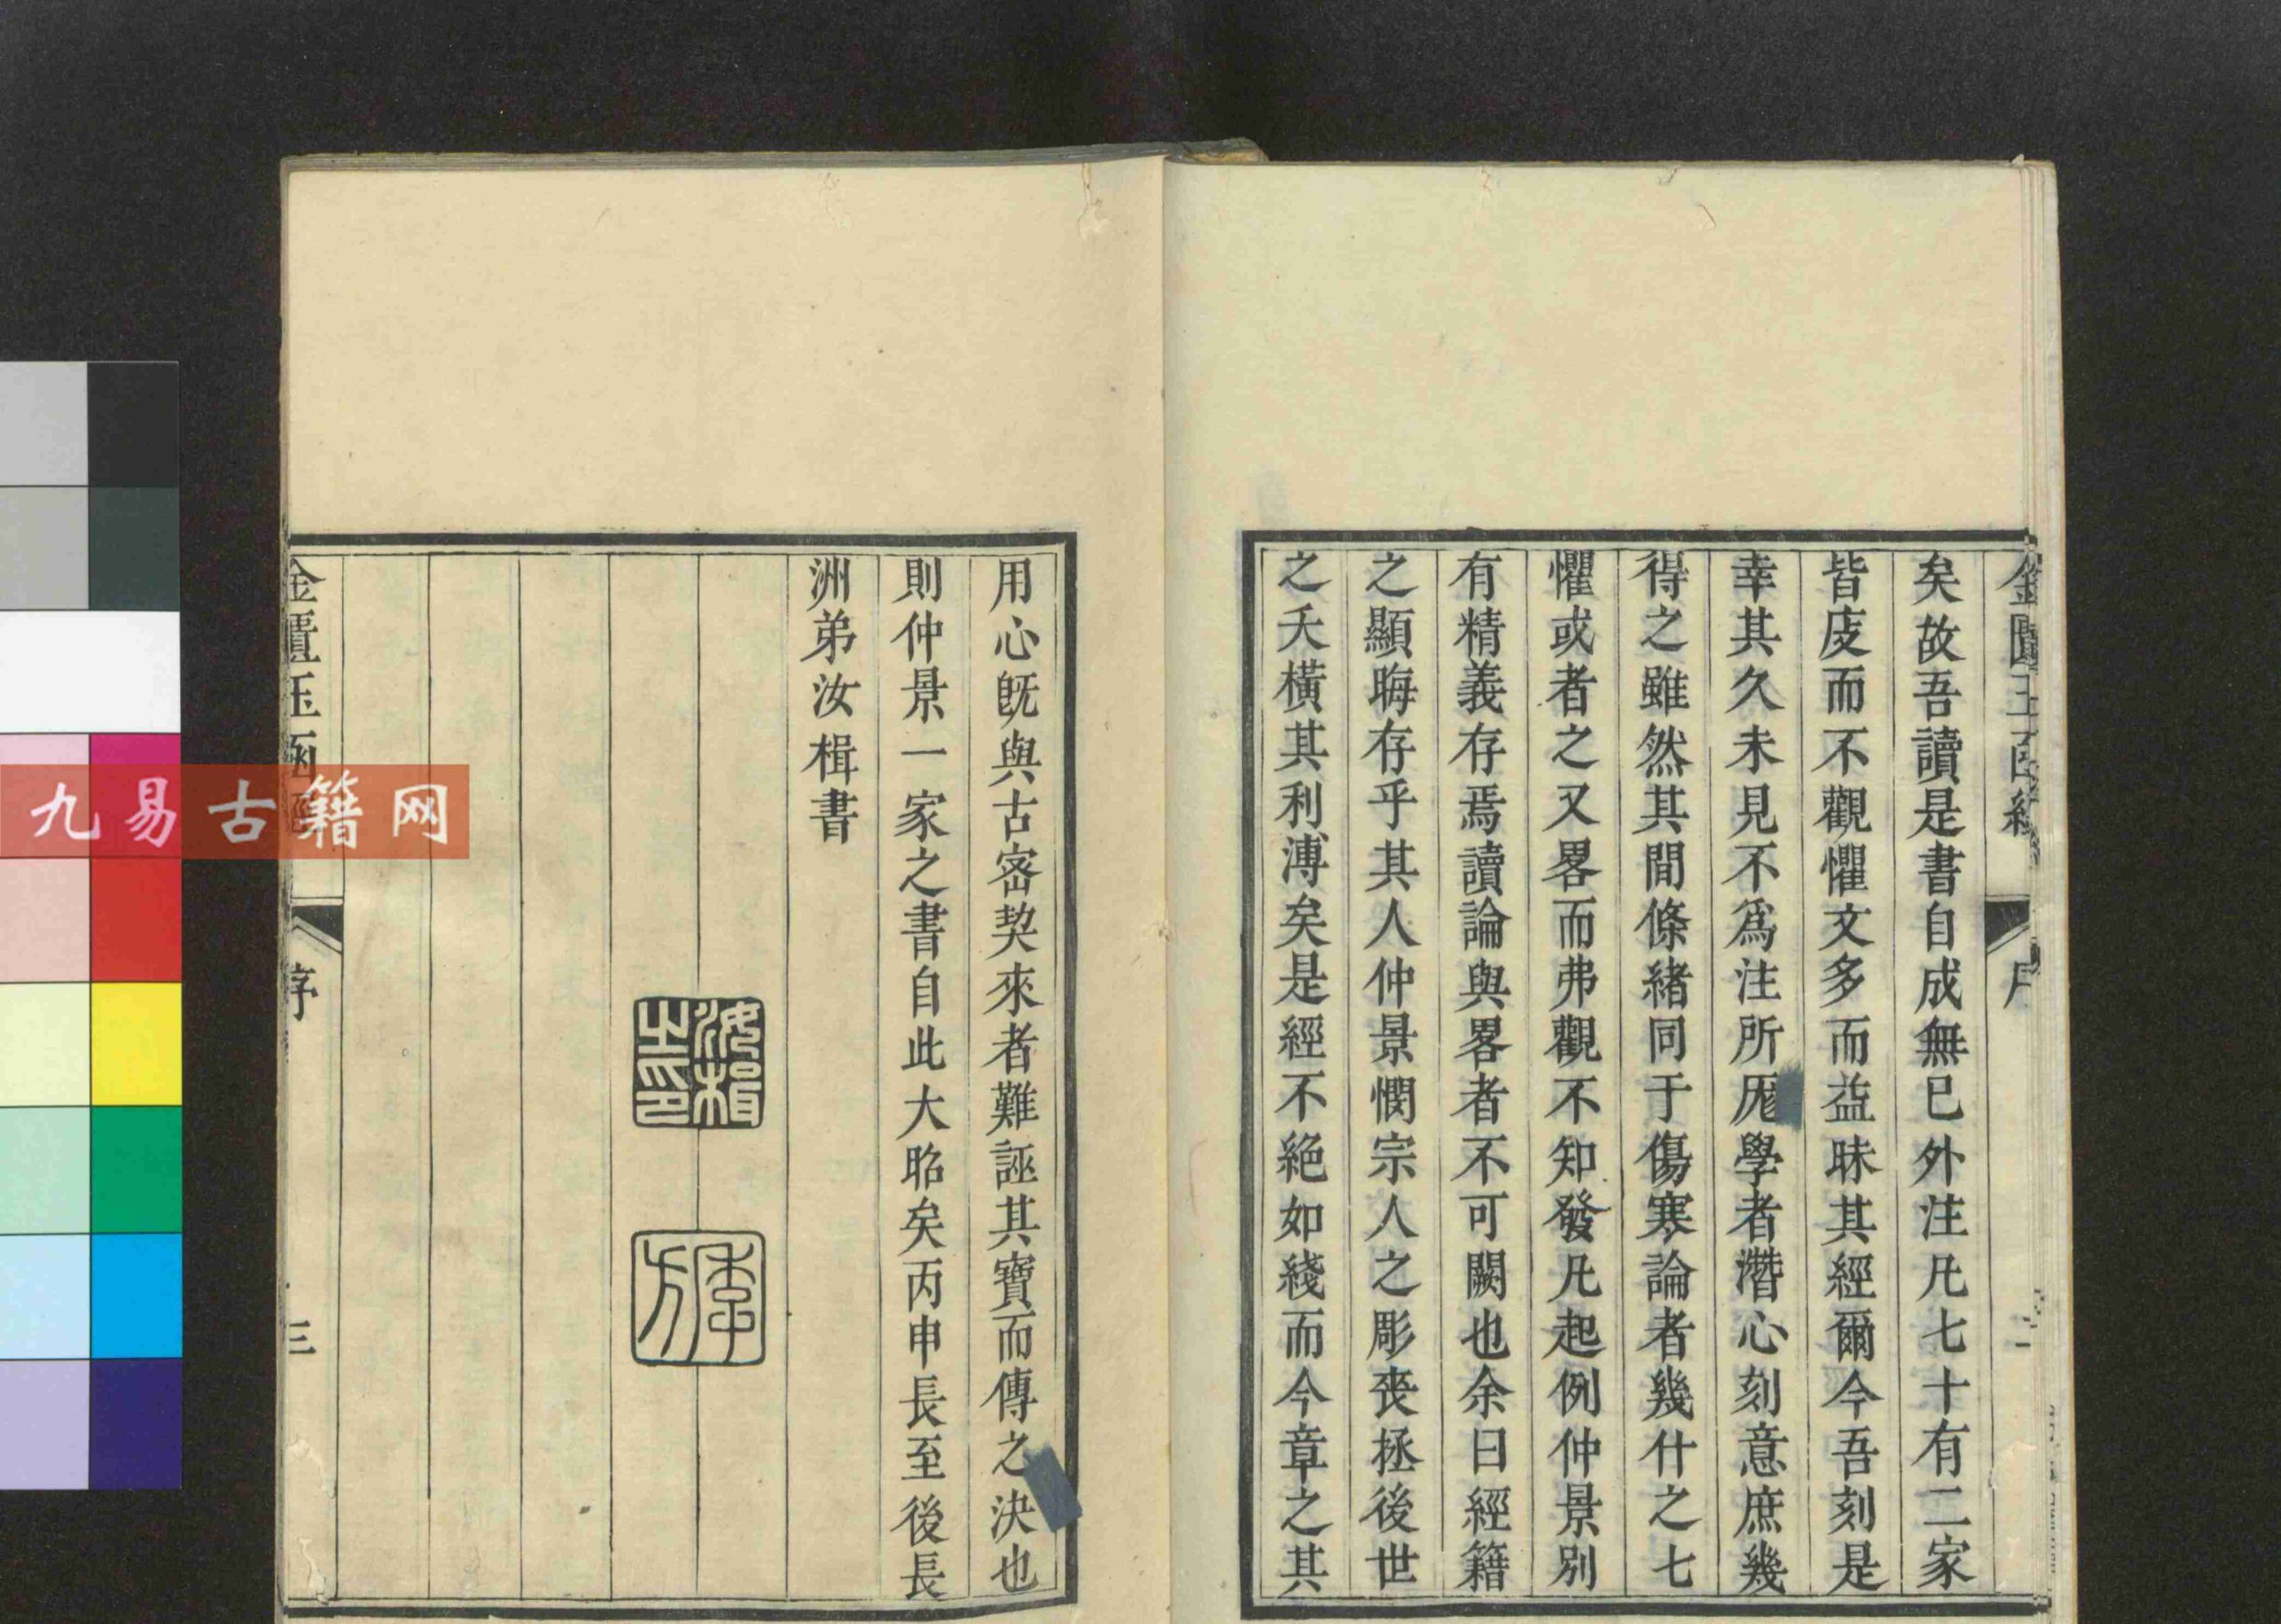 矣故吾讀是書自成無已外注凡七十有二家
皆庋而不觀懼文多而益昧其經爾今吾刻是
幸其久未見不爲注所厖學者潛心刻意庶幾
得之雖然其間條緒同于傷寒論者幾什之七
懼或者之又畧而弗觀不知發凡起例仲景別
有精義存焉讀論與畧者不可闕也余曰經籍
之顯晦存乎其人仲景憫宗人之彫喪拯後世
之夭橫其利溥矣是經不絕如綫而今章之其
用心旣與古宻契來者難誣其寶而傳之決也
則仲景一家之書自此大昭矣丙申長至後長
洲弟汝楫書
汝楫之印
季方
金匱玉函
序
三
九易古籍网